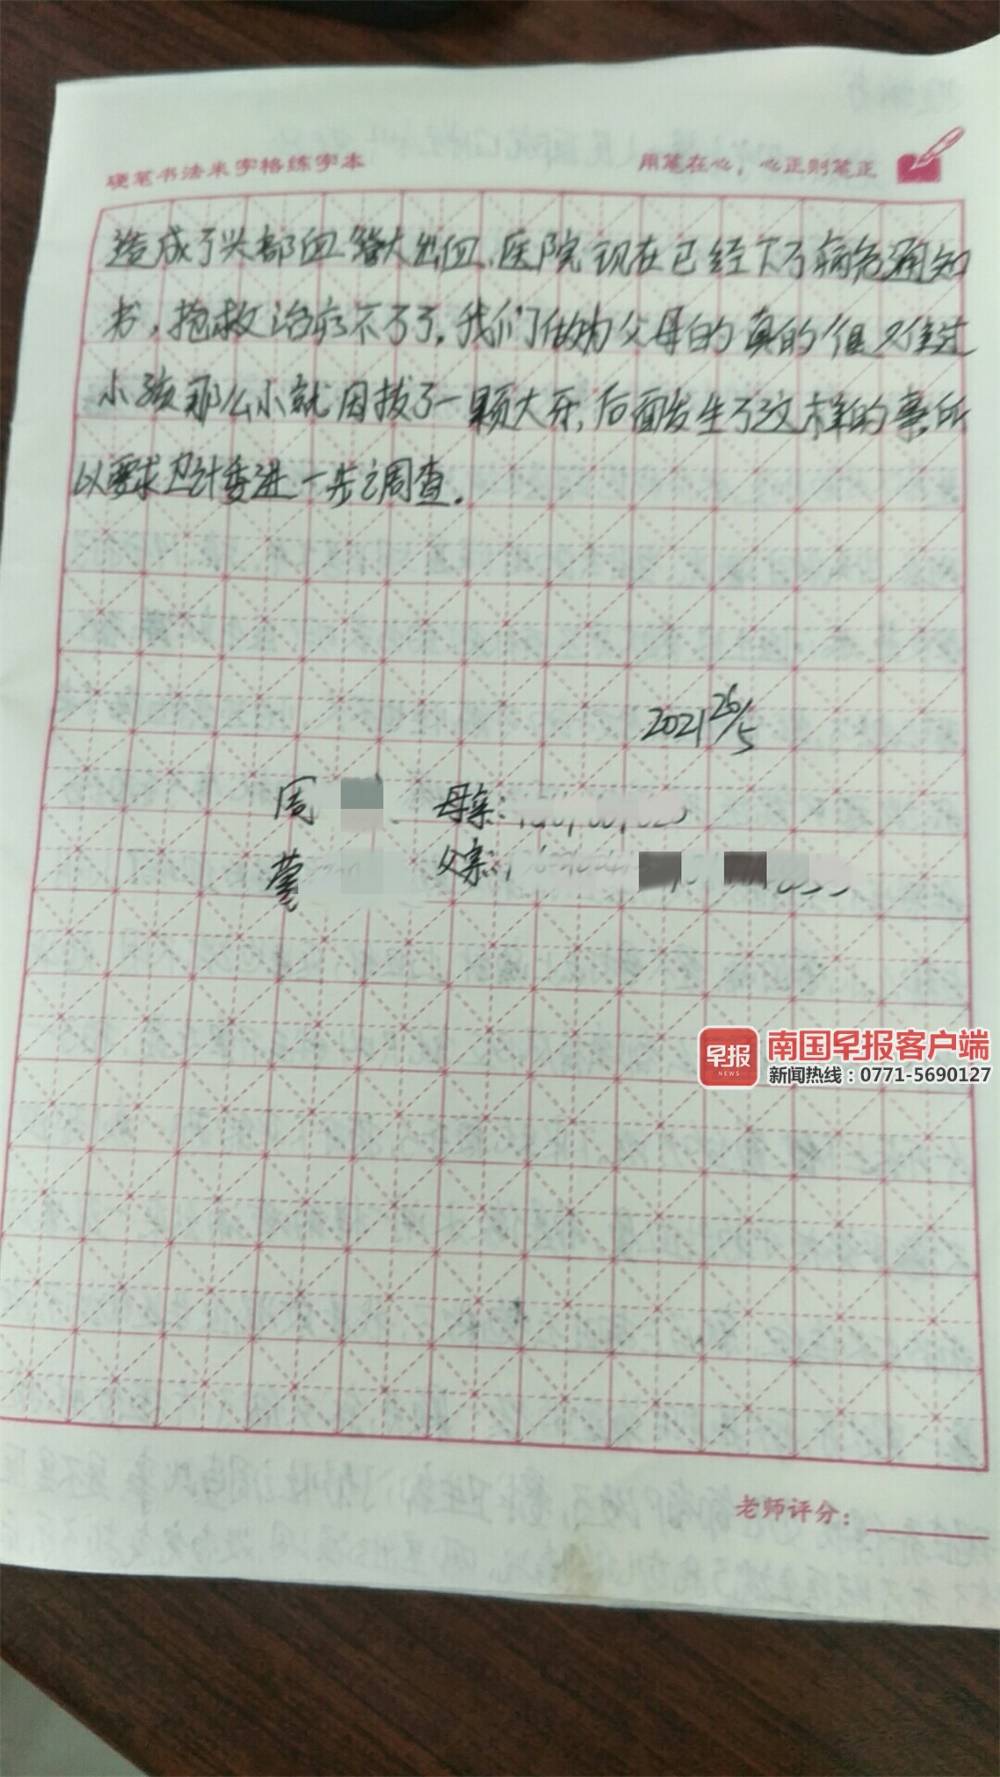 硬笔书法米字格练字本
用笔在心，心正则笔正
造成了头部血管大出血,医院现在已经下了病危通知
书,抢救治疗不了了,我们做为父母的真的很难过
小孩那么小就因拔了一颗大牙,后面发生了这样的事,所
以要求卫计委进一步调查.
2021 26/5
周
母亲:
父亲:
早报
NEWS
南国早报客户端
新闻热线：0771-5690127
老师评分：